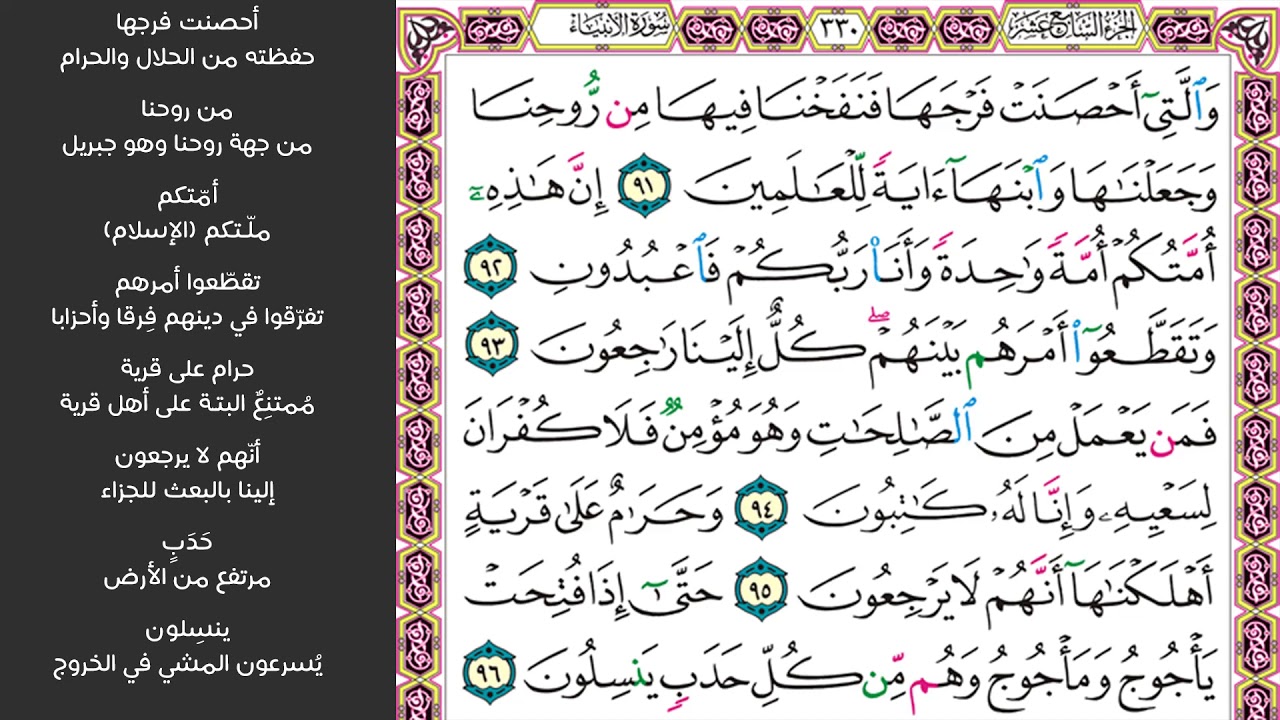 الجزء السابع عشر
٣٣٠
سورة الأنبياء
وَٱلَّتِيٓ أَحۡصَنَتۡ فَرۡجَهَا فَنَفَخۡنَا فِيهَا مِن رُّوحِنَا
وَجَعَلۡنَٰهَا وَٱبۡنَهَآ ءَايَةٗ لِّلۡعَٰلَمِينَ ٩١ إِنَّ هَٰذِهِۦٓ
أُمَّتُكُمۡ أُمَّةٗ وَٰحِدَةٗ وَأَنَا۠ رَبُّكُمۡ فَٱعۡبُدُونِ ٩٢
وَتَقَطَّعُوٓاْ أَمۡرَهُم بَيۡنَهُمۡۖ كُلٌّ إِلَيۡنَا رَٰجِعُونَ ٩٣
فَمَن يَعۡمَلۡ مِنَ ٱلصَّٰلِحَٰتِ وَهُوَ مُؤۡمِنٞ فَلَا كُفۡرَانَ
لِسَعۡيِهِۦ وَإِنَّا لَهُۥ كَٰتِبُونَ ٩٤ وَحَرَٰمٌ عَلَىٰ قَرۡيَةٍ
أَهۡلَكۡنَٰهَآ أَنَّهُمۡ لَا يَرۡجِعُونَ ٩٥ حَتَّىٰٓ إِذَا فُتِحَتۡ
يَأۡجُوجُ وَمَأۡجُوجُ وَهُم مِّن كُلِّ حَدَبٖ يَنسِلُونَ ٩٦
أحصنت فرجها
حفظته من الحلال والحرام
من روحنا
من جهة روحنا وهو جبريل
أمّتكم
ملّتكم (الإسلام)
تقطّعوا أمرهم
تفرّقوا في دينهم فِرقا وأحزابا
حرام على قرية
مُمتنعٌ البتة على أهل قرية
أنّهم لا يرجعون
إلينا بالبعث للجزاء
حَدَبٍ
مرتفع من الأرض
ينسِلون
يُسرعون المشي في الخروج